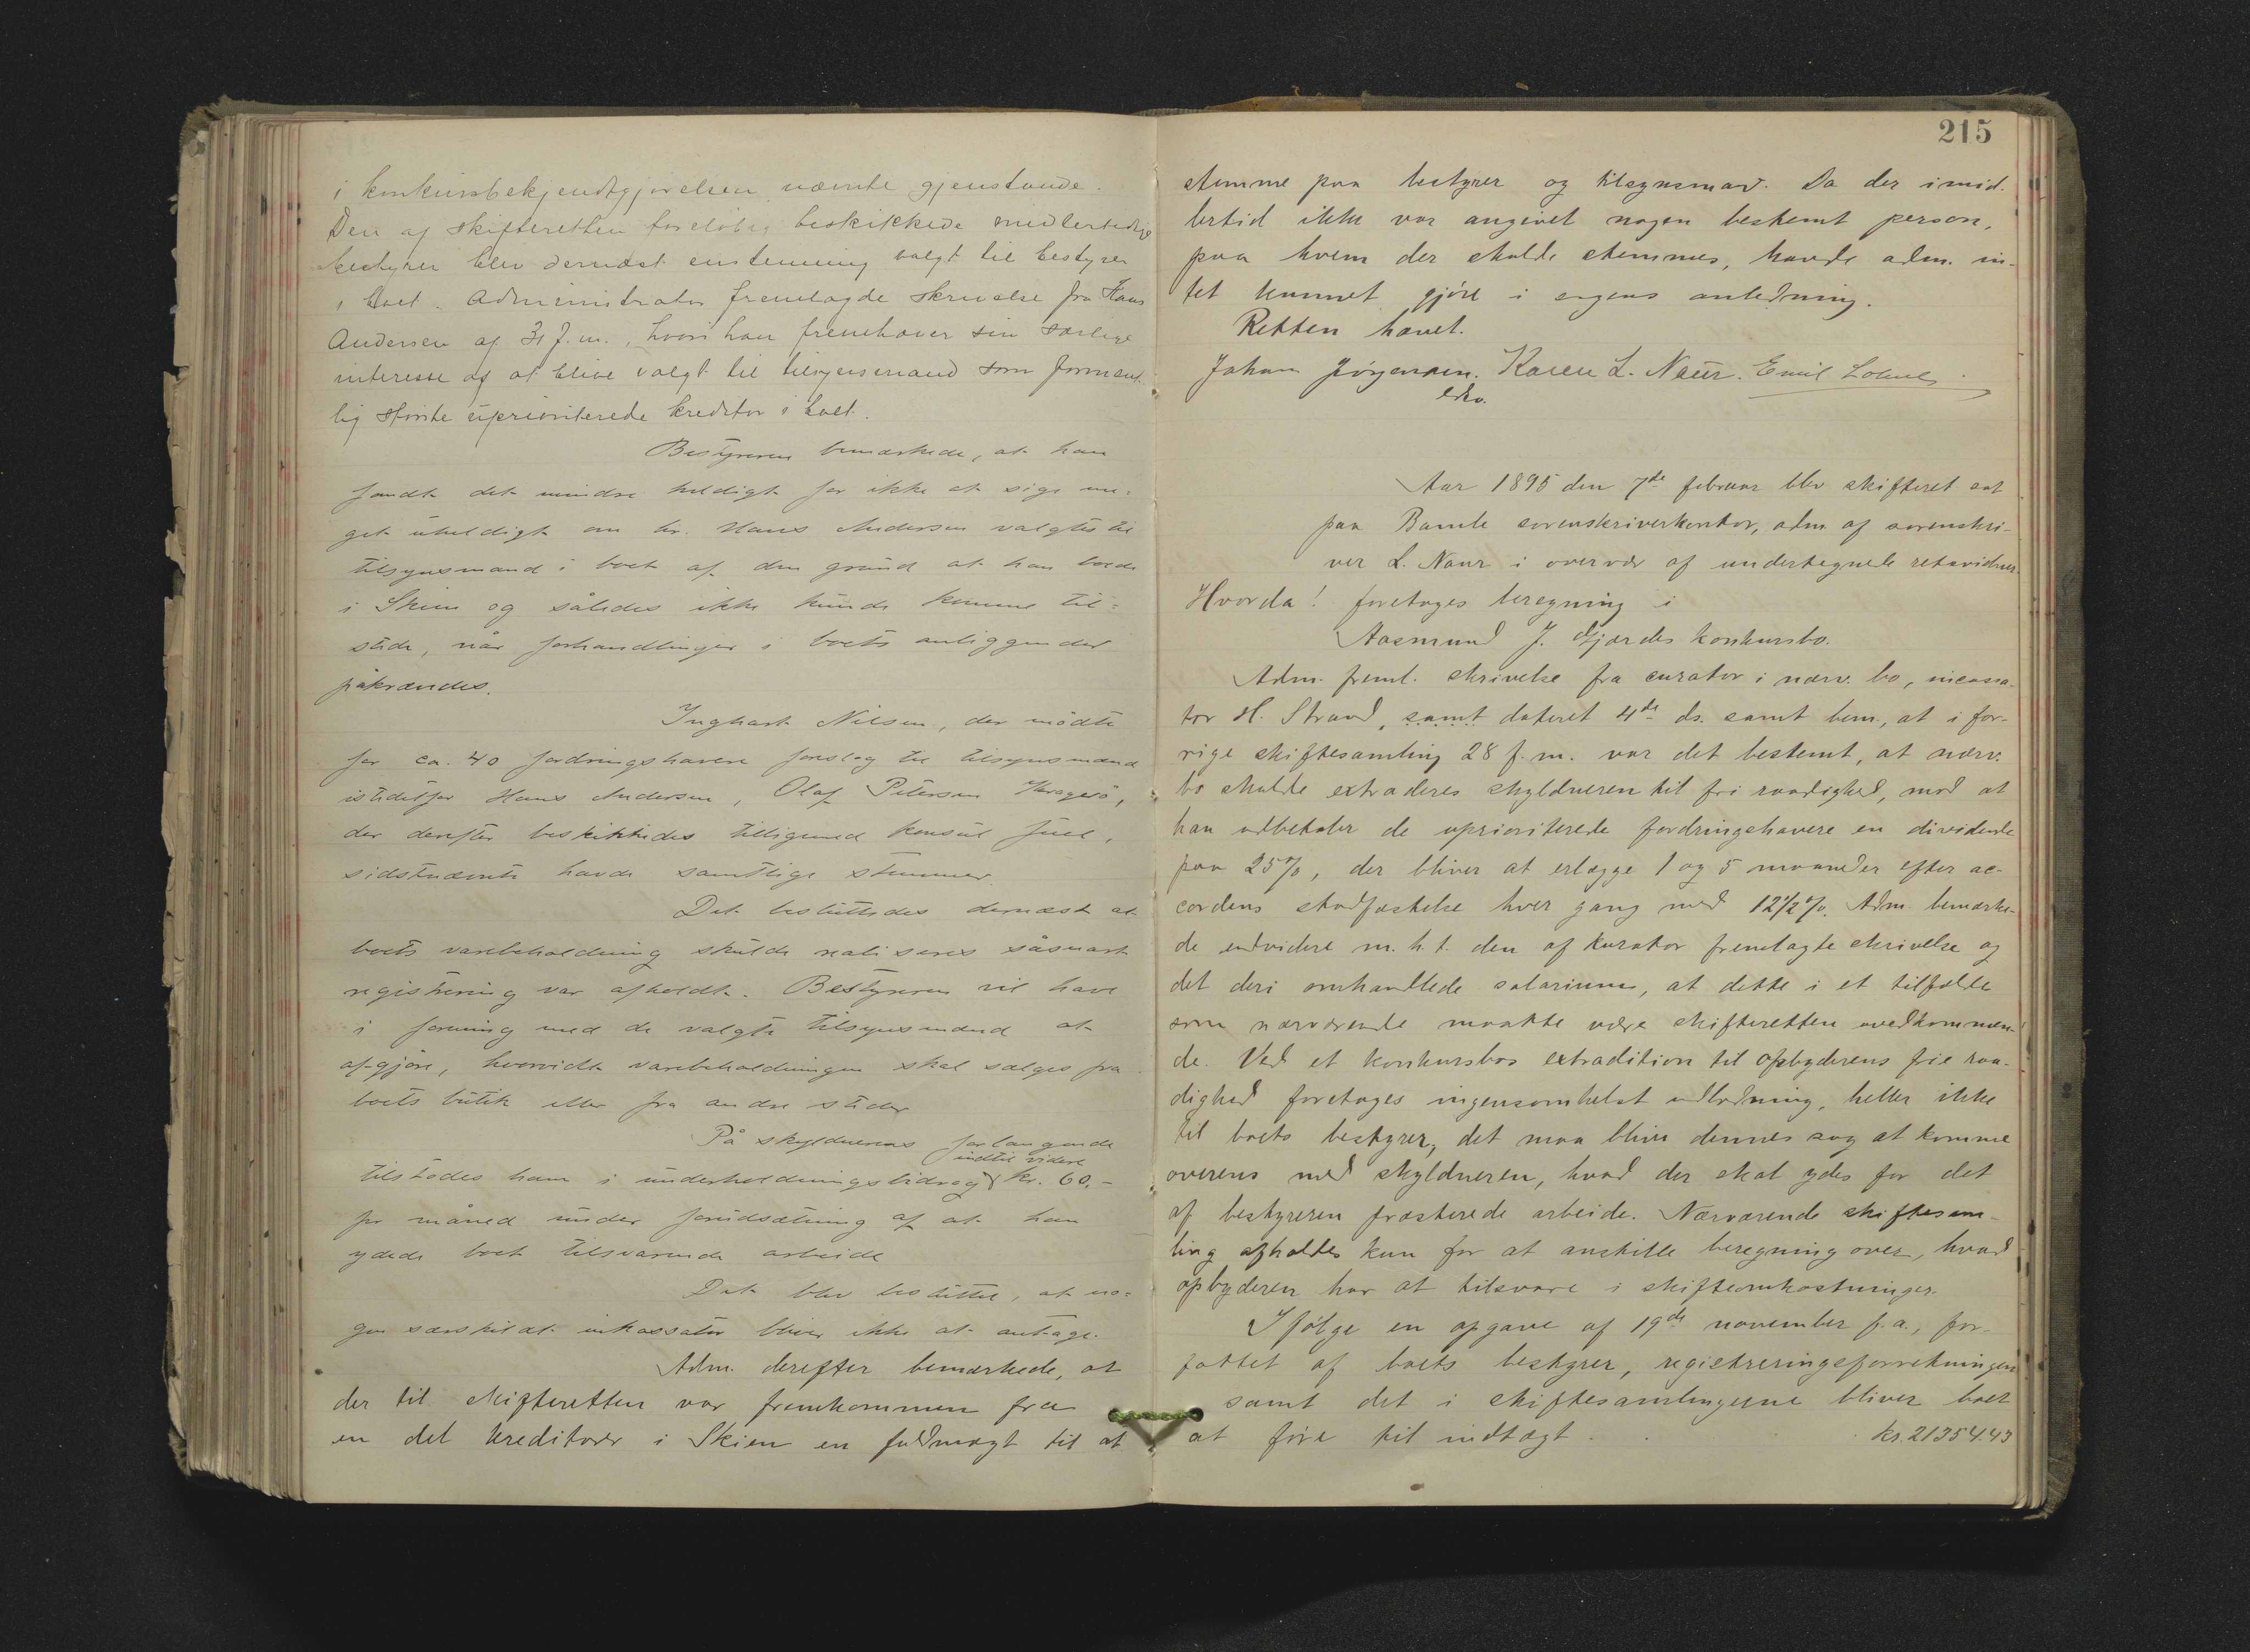 i konkursbekjendtgjørelsen nævnte gjenstande.
Den af skifteretten foreløbig beskikkede midlertidige
bestyrer blev dernæst enstemmig valgt til bestyrer
i boet. Administrator fremlagde skrivelse fra Hans
Andersen af 31 f.m., hvori han fremhæver sin særlige
interesse af at blive valgt til tilsynsmand som forment-
lig største uprioriterede kreditor i boet.
Bestyreren bemærkede, at han
fandt det mindre heldigt for ikke at sige me-
get uheldigt om hr. Hans Andersen valgtes til
tilsynsmand i boet af den grund at han boede
i Skien og således ikke kunde komme til-
stede, når forhandlinger i boets anliggender
påkrævdes.
Inghart Nilsen, der mødte
for ca. 40 fordringshavere foreslog til tilsynsmænd
istedetfor Hans Andersen, Olaf Petersen Kragerø,
der derefter beskikkedes tilligemed konsul Juel,
sidstnævnte havde samtlige stemmer.
Det besluttedes dernæst at
boets varebeholdning skulde realiseres såsnart
registrering var afholdt. Bestyreren vil have
i forening med de valgte tilsynsmænd at
afgjøre, hvorvidt varebeholdningen skal sælges fra
boets butik eller fra andre steder
På skyldnerens forlangende
indtil videre
tilstodes ham i underholdningsbidrag kr. 60.-
pr måned under forudsætning af at han
ydede boet tilsvarende arbeide
Det blev besluttet, at no-
gen særskildt inkassator bliver ikke at antage.
Adm. derefter bemærkede, at
der til skifteretten var fremkommen fra
en del kreditorer i Skien en fuldmagt til at
215
stemme paa bestyrer og tilsynsmænd. Da der imid-
lertid ikke var angivet nogen bestemt person,
paa hvem der skulde stemmes, havde adm. in-
tet kunnet gjöre i sagens anledning.
Retten hævet.
Johan Jörgensen. Karen L. Naur. Emil
Aar 1895 den 7de februar blev skifteret sat
paa Bamle sorenskriverkontor, adm af sorenskri-
ver L. Naur i overvær af undertegnede retsvidner.
Hvorda! foretoges beregning i
Aasmund J. Gjærdes konkursbo.
Adm. freml. skrivelse fra curator i nærv. bo, incassa-
tor H. Strand, samt dateret 4de ds. samt bem., at i for-
rige skiftesamling 28 f.m. var det bestemt, at nærv.
bo skulde extraderes skyldneren til fri raadighed, mod at
han udbetaler de uprioriterede fordringshavere en dividende
paa 25%, der bliver at erlægge 1 og 5 maaneder efter ac-
cordens stadfæstelse hver gang med 12½%. Adm. bemærke-
de endvidere m.h.t. den af kurator fremlagte skrivelse og
det deri omhandlede salarium, at dette i et tilfælde
som nærværende maatte være skifteretten uvedkommen-
de. Ved et konkursbos extradition til opbyderens frie raa-
dighed foretages ingensomhelst udlodning, heller ikke
til boets bestyrer, det maa blive dennes sag at komme
overens med skyldneren, hvad der skal ydes for det
af bestyreren præsterede arbeide. Nærværende skiftesam-
ling afholdes kun for at anstille beregning over, hvad
opbyderen har at tilsvare i skifteomkostninger.
Ifölge en opgave af 19de november f.a., for-
fattet af boets bestyrer, registreringsforretningen
samt det i skiftesamlingerne bliver boet
at före til indtægt . . kr. 21354.43